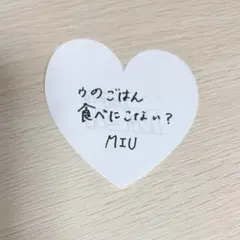 ゥのごはん
食べにこない?
MIU